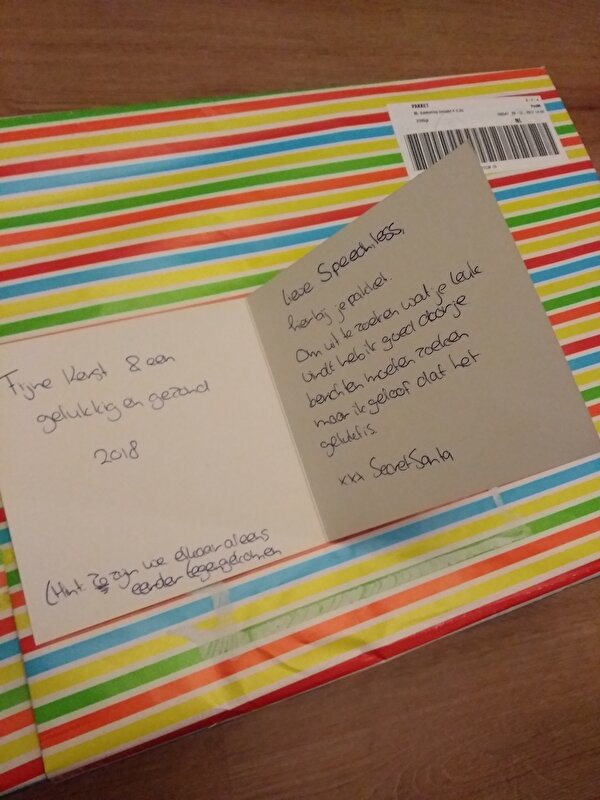 PAKKET
NL
Fijne Kerst & een
gelukkig en gezond
2018
(Hint: Zo zijn we elkaar al eens
eerder tegengekomen
Lieve Speechless,
hierbij je pakket.
Om uit te zoeken wat je leuk
vindt heb ik goed door je
berichten moeten zoeken
maar ik geloof dat het
gelukt is.
xxx Secret Santa